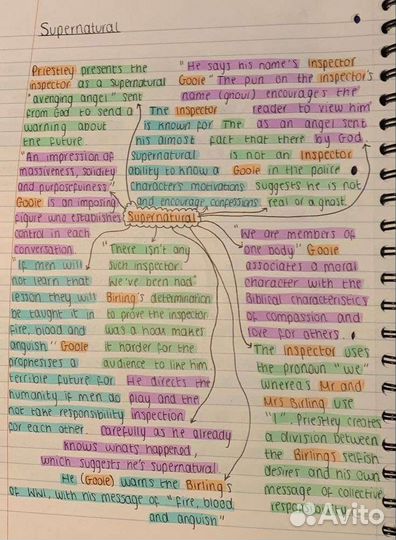 Supernatural
Priestley presents the
inspector as a supernatural
"avenging angel" sent
from God to send a
warning about
the future.
"He says his name's Inspector
Goole" The pun on the inspector's
name (ghoul) encourages the
reader to view him
as an angel sent
by God.
The Inspector
is known for
his almost
supernatural
ability to know a
characters motivations
and encourage confessions
The
fact that there
is not an Inspector
Goole in the police
suggests he is not
real or a ghost.
"An impression of
massiveness, solidity
and purposefulness"
Goole is an imposing
figure who establishes
control in each
conversation.
Supernatural
"If men will
not learn that
lesson they will
be taught it in
fire, blood and
anguish" Goole
prophesises a
terrible future for
humanity if men do
not take responsibility
for each other.
"There isn't any
such inspector.
We've been had"
Birling's determination
to prove the inspector
was a hoax makes
it harder for the
audience to like him.
"We are members of
one body" Goole
associates a moral
character with the
Biblical characteristics
of compassion and
love for others.
The Inspector uses
the pronoun "we"
whereas Mr and
Mrs Birling use
"I". Priestley creates
a division between
the Birling's selfish
desires and his own
message of collective
responsibility.
He directs the
play and the
inspection
carefully as he already
knows whats happened,
which suggests he's supernatural.
He (Goole) warns the Birling's
of WWI, with his message of "fire, blood
and anguish"
Avito